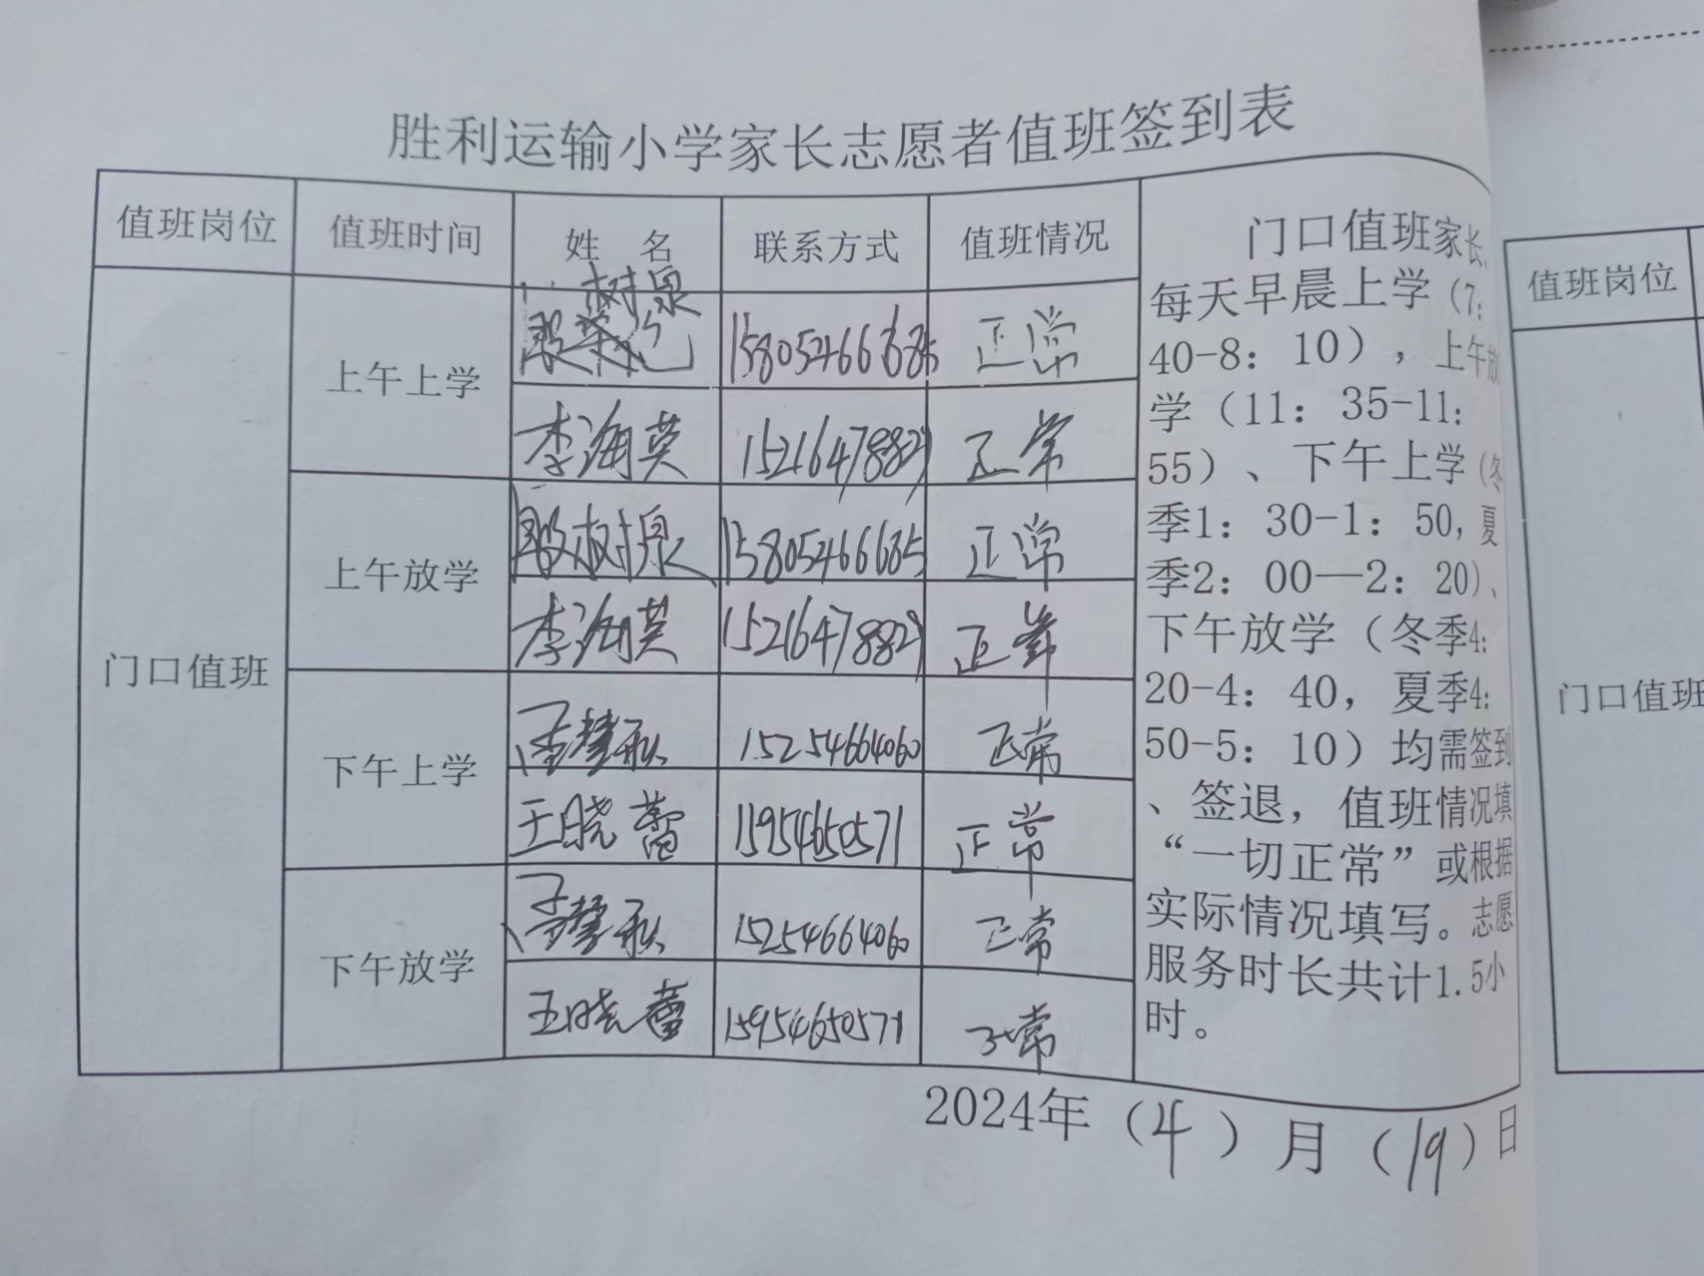 胜利运输小学家长志愿者值班签到表
值班岗位 值班时间 姓 名 联系方式 值班情况
门口值班
上午上学 树泉 15805466685 正常
李海英 15216478829 正常
上午放学 殷树泉 15805466685 正常
李海英 15216478829 正常
下午上学 慧秋 15254664060 正常
王晓蕾 15954650571 正常
下午放学 慧秋 15254664060 正常
王晓蕾 15954650571 正常
门口值班家长,
每天早晨上学（7:
40-8: 10），上午放
学（11: 35-11:
55）、下午上学（冬
季1: 30-1: 50,夏
季2: 00—2: 20）、
下午放学（冬季4:
20-4: 40, 夏季4:
50-5: 10）均需签到
、签退，值班情况填
“一切正常”或根据
实际情况填写。志愿
服务时长共计1.5小
时。
2024年（4）月（19）日
值班岗位
门口值班